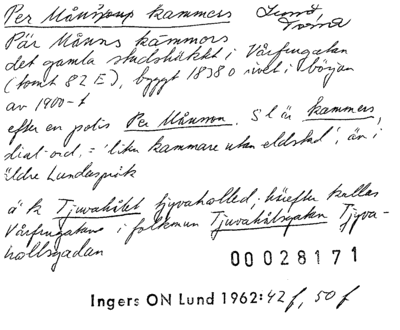 Per Månsjoup kammers Lund
Pär Månns kammors
det gamla stadshäktet i Vårfrugatan
(tomt 82 E), byggt 1838 o rivet i början
av 1900-t
efter en polis Per Månsson. S l är kammers,
dial-ord, = 'liten kammare utan eldstad', än i
äldre Lundaspråk
ä k Tjuvahålet tjyvaholled; härefter kallas
Vårfrugatan i folkmun Tjuvahålsgatan Tjyva-
hollsgadan
00028171
Ingers ON Lund 1962: 42 f, 50 f